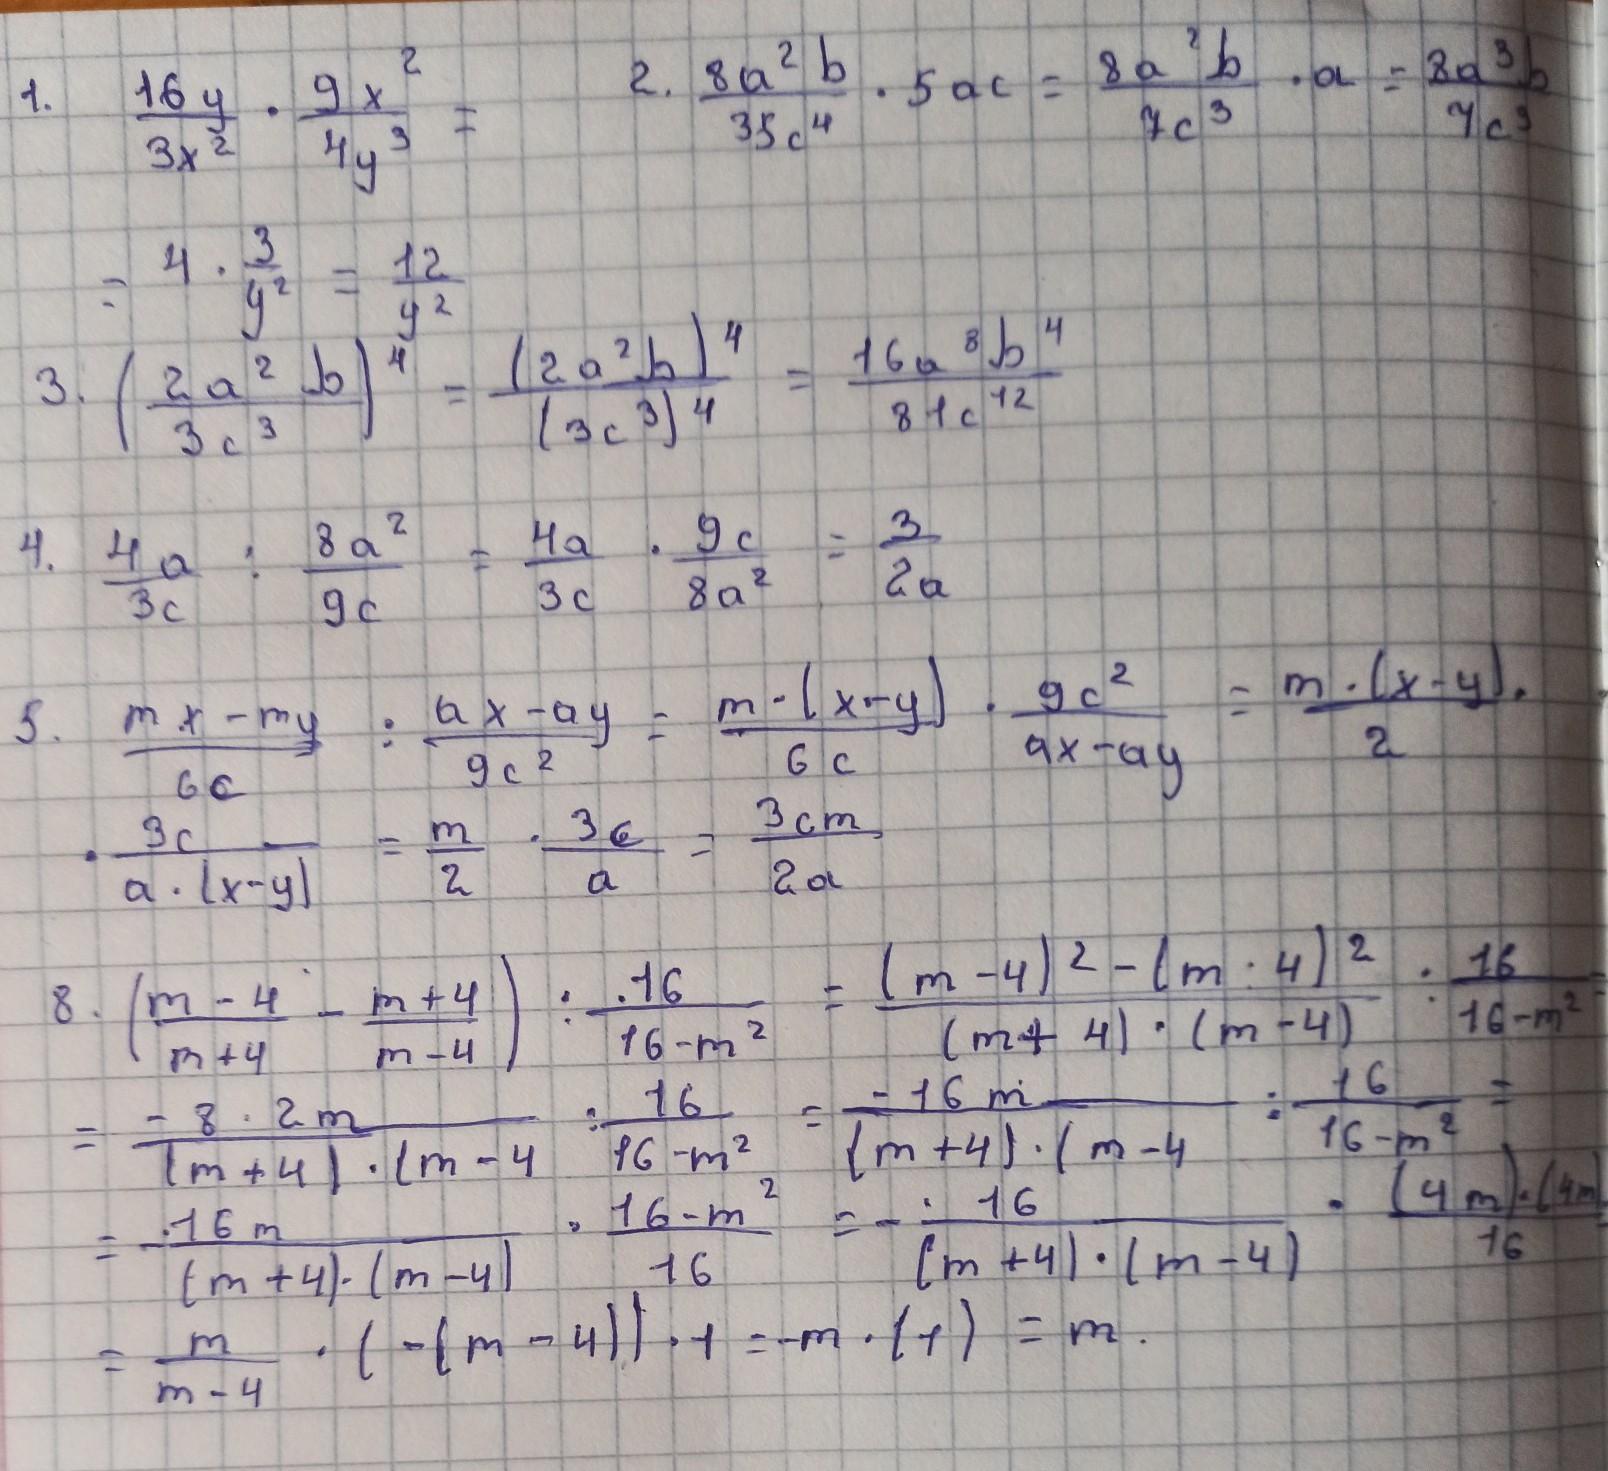 1. 16y/3x² · 9x²/4y³ =
= 4 · 3/y² = 12/y²
2. 8a²b/35c⁴ · 5ac = 8a²b/7c³ · a = 8a³b/7c³
3. (2a²b/3c³)⁴ = (2a²b)⁴/(3c³)⁴ = 16a⁸b⁴/81c¹²
4. 4a/3c : 8a²/9c = 4a/3c · 9c/8a² = 3/2a
5. mx-my/6c : ax-ay/9c² = m·(x-y)/6c · 9c²/ax-ay = m·(x-y)/2 ·
· 3c/a·(x-y) = m/2 · 3c/a = 3cm/2a
8. (m-4/m+4 - m+4/m-4) : 16/16-m² = (m-4)²-(m·4)²/(m+4)·(m-4) : 16/16-m² =
= -8·2m/(m+4)·(m-4 : 16/16-m² = -16m/(m+4)·(m-4 : 16/16-m² =
= -16m/(m+4)·(m-4) · 16-m²/16 = - 16/(m+4)·(m-4) · (4m)·(4m)/16
= m/m-4 · (-(m-4))·1 = -m·(1) = m.